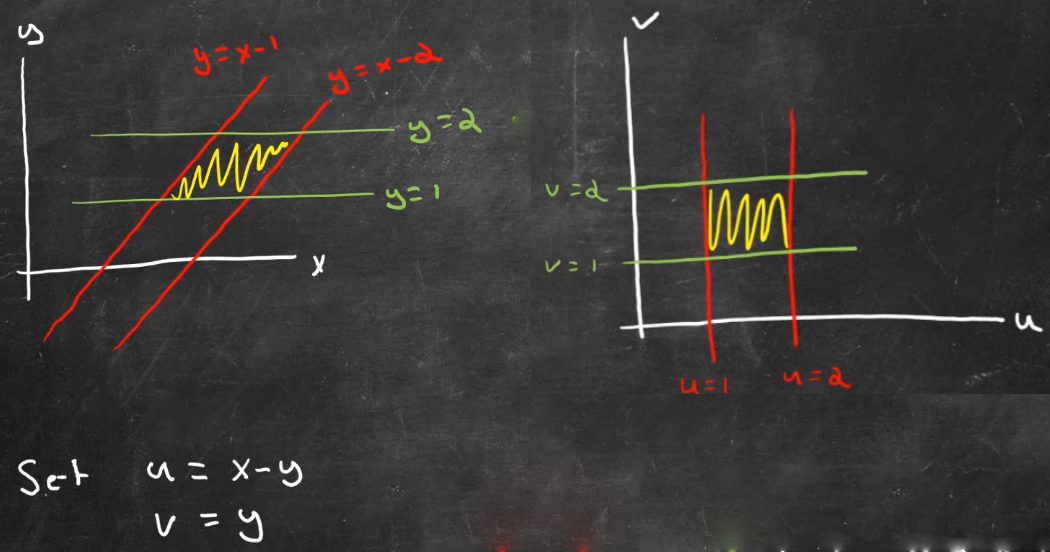 y
y=x-1
y=x-2
y=2
y=1
x
v
v=2
v=1
u
u=1
u=2
Set u = x-y
v = y